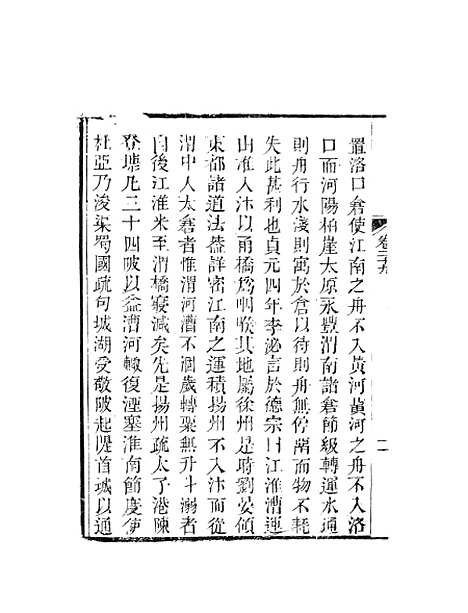 卷二十九
二
置洛口倉使江南之舟不入黃河黃河之舟不入洛
口而河陽柏崖太原永豐渭南諸倉節級轉運水通
則舟行水淺則寓於倉以待則舟無停留而物不耗
失此甚利也貞元四年李泌言於德宗曰江淮漕運
由淮入汴以甬橋為咽喉其地屬徐州是時劉晏領
東都諸道法葢詳密江南之運積揚州不入汴而從
渭中人太倉者惟渭河漕不涸歲轉粟無升斗溺者
自後江淮米至渭橋寖減矣先是揚州疏太子港陳
登塘凡三十四陂以益漕河輙復湮塞淮南節度使
杜亞乃浚渠蜀國疏句城湖受敬陂起隄首城以通